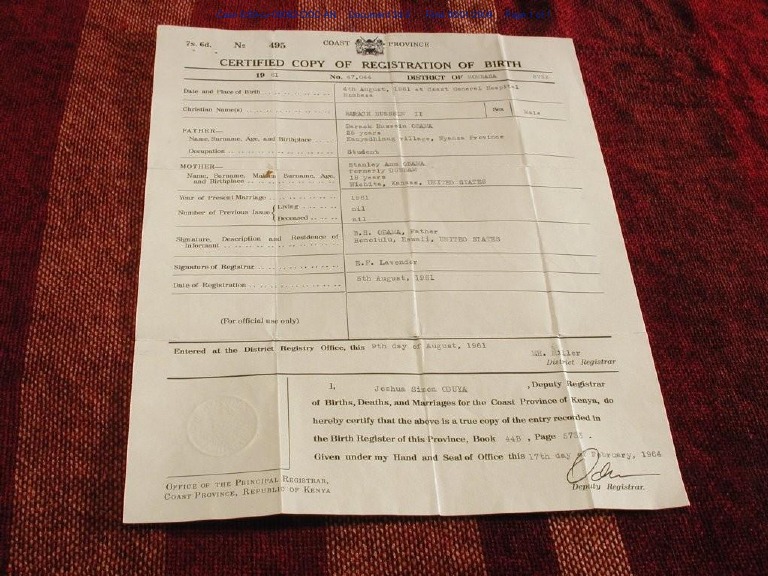 7s. 6d. No 495 COAST PROVINCE
CERTIFIED COPY OF REGISTRATION OF BIRTH
19 61 No. 47,044 DISTRICT OF MOMBASA 5733
Date and Place of Birth 4th August, 1961 at Coast General Hospital
Mombasa
Christian Name(s) BARACK HUSSEIN II Sex Male
FATHER— Barack Hussein OBAMA
Name, Surname, Age, and Birthplace 26 years
Kanyadhiang village, Nyanza Province
Occupation Student
MOTHER— Stanley Ann OBAMA
Name, Surname, Maiden Surname, Age, formerly DUNHAM
and Birthplace 18 years
Wichita, Kansas, UNITED STATES
Year of Present Marriage 1961
Number of Previous Issue Living nil
Deceased nil
Signature, Description and Residence of B.H. OBAMA, Father
Informant Honolulu, Hawaii, UNITED STATES
Signature of Registrar E.F. Lavender
Date of Registration 5th August, 1961
(For official use only)
Entered at the District Registry Office, this 9th day of August, 1961
MH. Miller
District Registrar
I, Joshua Simon ODUYA, Deputy Registrar
of Births, Deaths, and Marriages for the Coast Province of Kenya, do
hereby certify that the above is a true copy of the entry recorded in
the Birth Register of this Province, Book 44B, Page 5733.
Given under my Hand and Seal of Office this 17th day of February, 1964
OFFICE OF THE PRINCIPAL REGISTRAR,
COAST PROVINCE, REPUBLIC OF KENYA
Deputy Registrar.